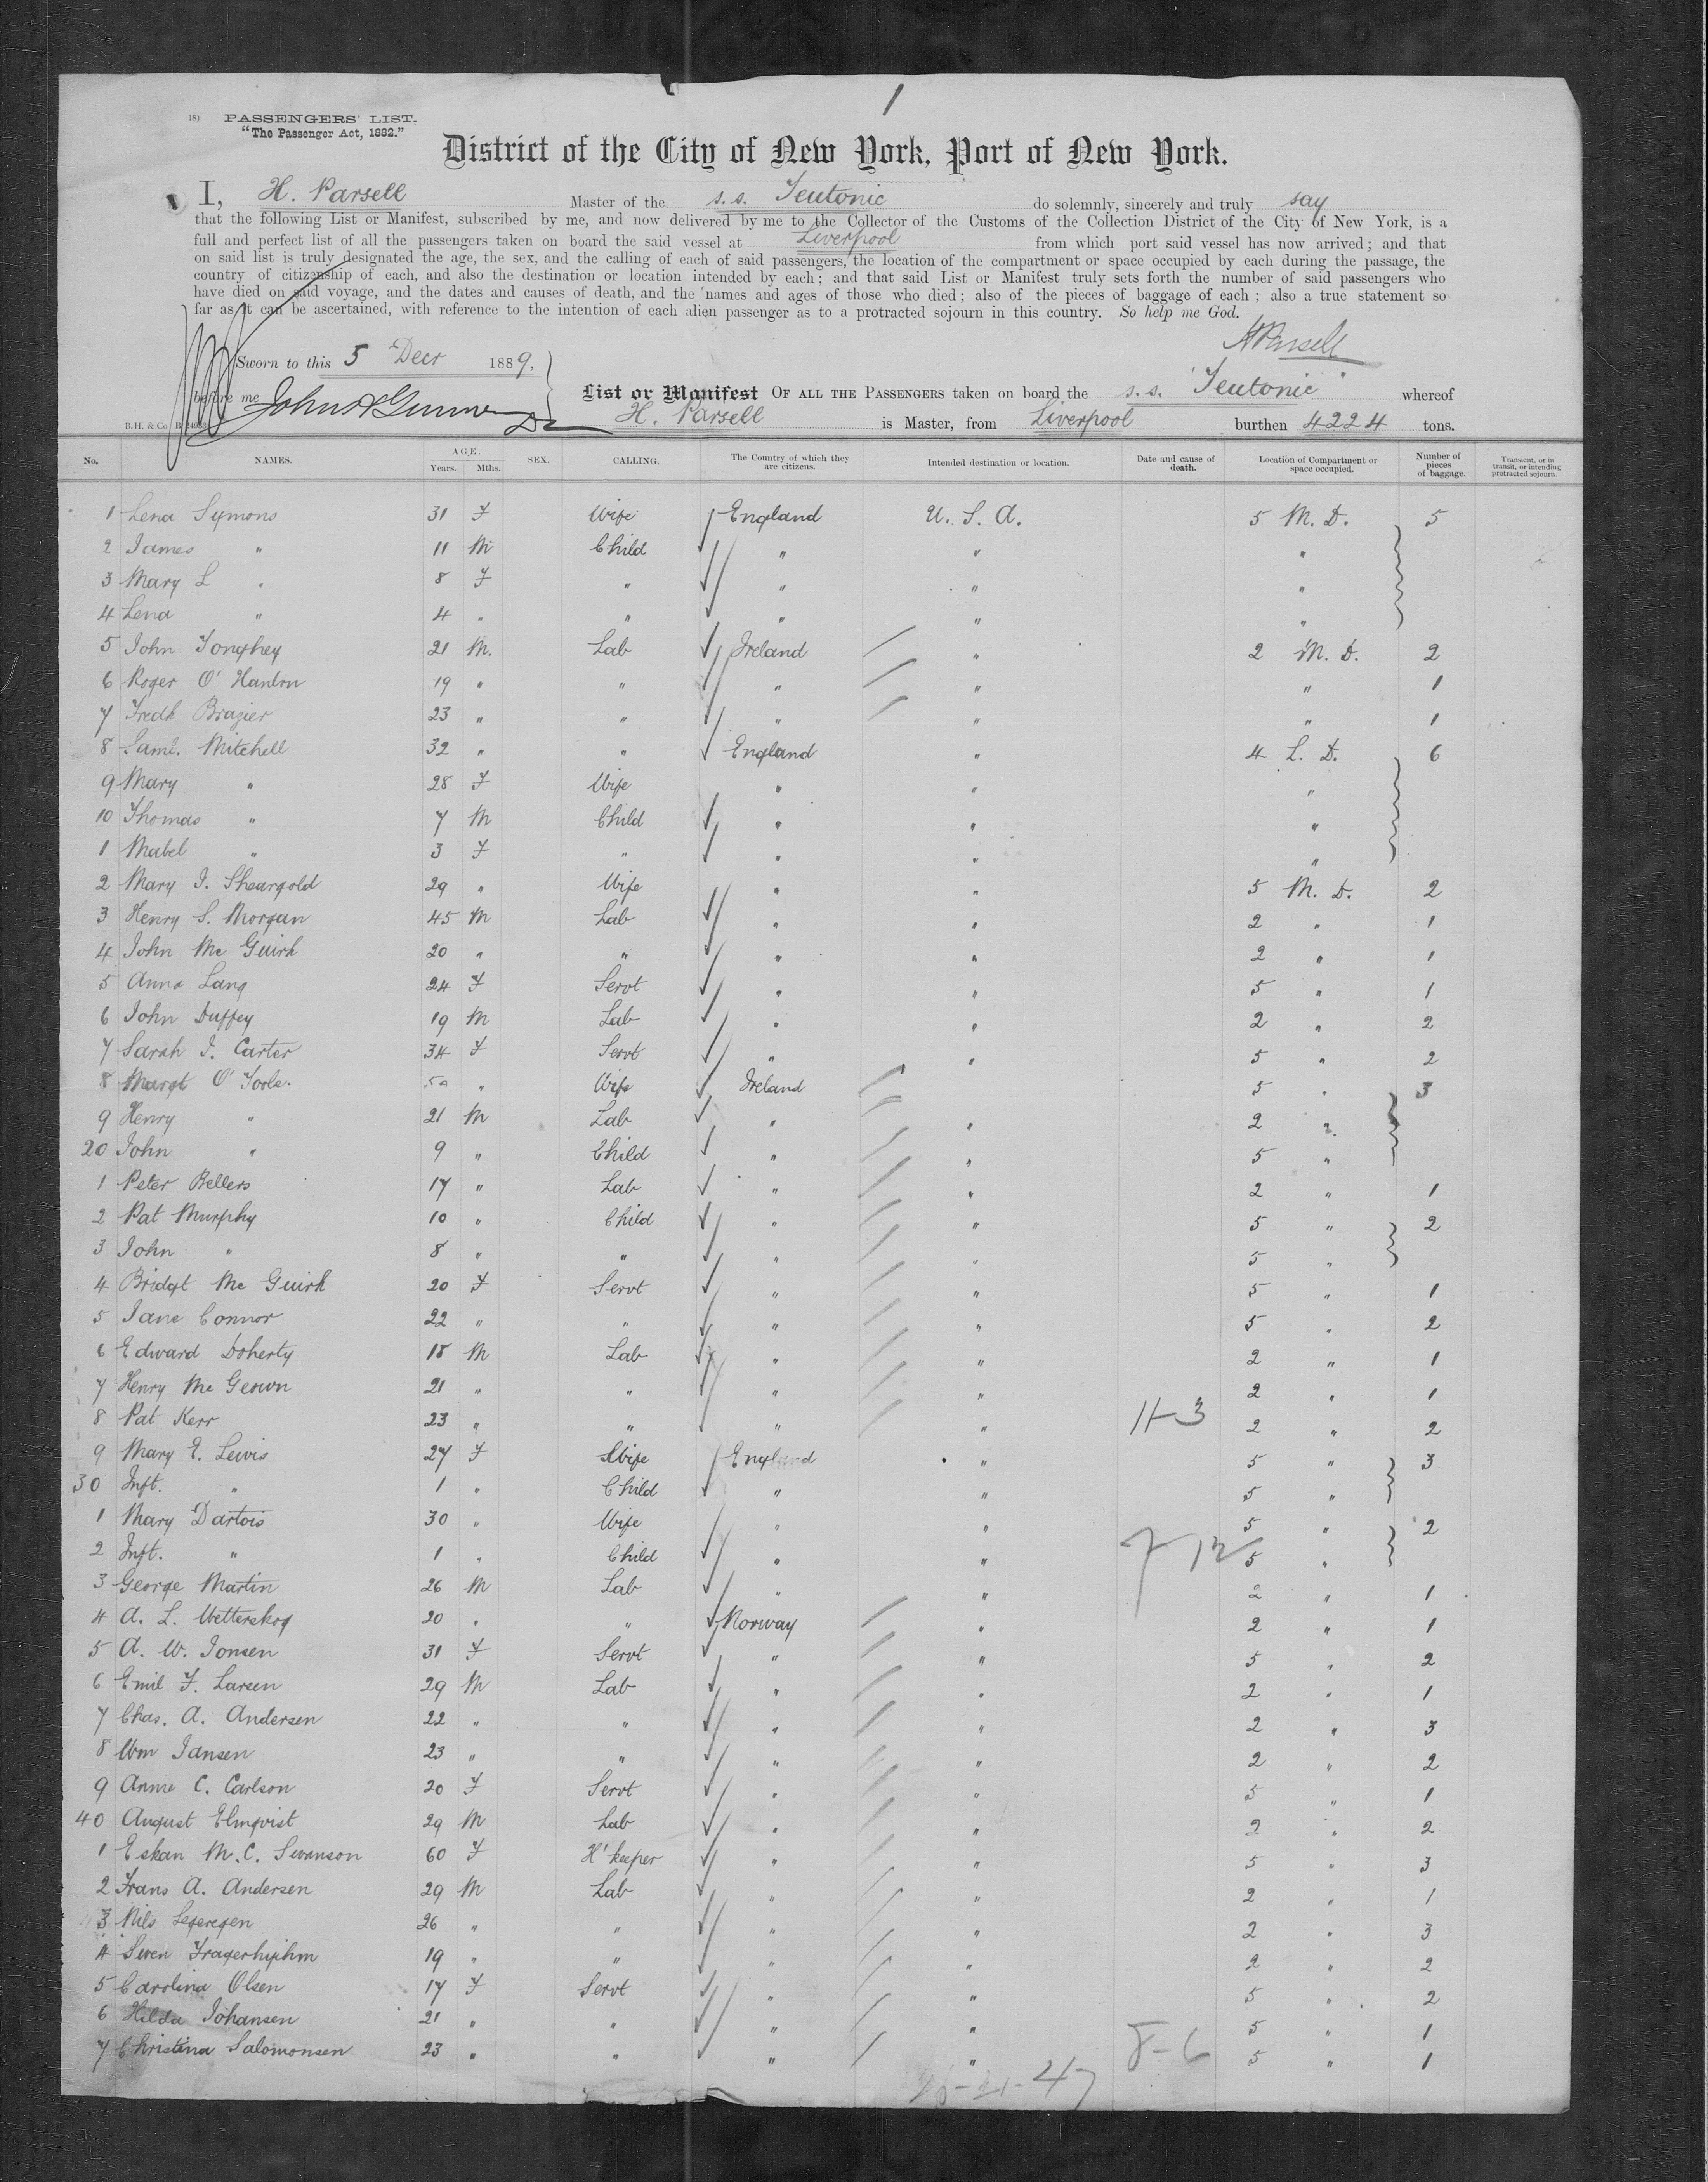 1
18) PASSENGERS' LIST.
"The Passenger Act, 1882."
District of the City of New York, Port of New York.
I, H. Parsell Master of the s.s. Teutonic do solemnly, sincerely and truly say
that the following List or Manifest, subscribed by me, and now delivered by me to the Collector of the Customs of the Collection District of the City of New York, is a
full and perfect list of all the passengers taken on board the said vessel at Liverpool from which port said vessel has now arrived; and that
on said list is truly designated the age, the sex, and the calling of each of said passengers, the location of the compartment or space occupied by each during the passage, the
country of citizenship of each, and also the destination or location intended by each; and that said List or Manifest truly sets forth the number of said passengers who
have died on said voyage, and the dates and causes of death, and the names and ages of those who died; also of the pieces of baggage of each; also a true statement so
far as it can be ascertained, with reference to the intention of each alien passenger as to a protracted sojourn in this country. So help me God.
H Parsell
Sworn to this 5 Decr 1889,
before me
List or Manifest OF ALL THE PASSENGERS taken on board the s.s. "Teutonic" whereof
H. Parsell is Master, from Liverpool burthen 4224 tons.
B.H. & Co.
No. NAMES. AGE. Years. Mths. SEX. CALLING. The Country of which they are citizens. Intended destination or location. Date and cause of death. Location of Compartment or space occupied. Number of pieces of baggage. Transient, or in transit, or intending protracted sojourn.
1 Lena Symons 31 F Wife England U. S. A. 5 M. D. 5
2 James " 11 M Child " " "
3 Mary L " 8 F " " " "
4 Lena " 4 " " " " "
5 John 21 M. Lab Ireland " 2 M. D. 2
6 Roger O'Hanlon 19 " " " " " 1
7 Fredk Brazier 23 " " " " " 1
8 Saml. Mitchell 32 " " England " 4 L. D. 6
9 Mary " 28 F Wife " " "
10 Thomas " 7 M Child " " "
1 Mabel " 3 F " " " "
2 Mary J. Sheargold 29 " Wife " " 5 M. D. 2
3 Henry S. Morgan 45 M Lab " " 2 " 1
4 John Mc Guirk 20 " " " " 2 " 1
5 Anna Lang 24 F Servt " " 5 " 1
6 John Duffey 19 M Lab " " 2 " 2
7 Sarah J. Carter 34 F Servt " " 5 " 2
8 Margt O'Toole. 50 " Wife Ireland 5 " 3
9 Henry " 21 M Lab " " 2 "
20 John " 9 " Child " " 5 "
1 Peter Bellers 17 " Lab " " 2 " 1
2 Pat Murphy 10 " Child " " 5 " 2
3 John " 8 " " " " 5 "
4 Bridgt Mc Guirk 20 F Servt " " 5 " 1
5 Jane Connor 22 " " " " 5 " 2
6 Edward Doherty 18 M Lab " " 2 " 1
7 Henry Mc Geown 21 " " " " 2 " 1
8 Pat Kerr 23 " " " " 11-3 2 " 2
9 Mary E. Lewis 27 F Wife England " 5 " 3
30 Inft. " 1 " Child " " 5 "
1 Mary Dartois 30 " Wife " " 5 " 2
2 Inft. " 1 " Child " " 7-12 5 "
3 George Martin 26 M Lab " " 2 " 1
4 A. L. Wetterskog 20 " " Norway " 2 " 1
5 A. W. Jonsen 31 F Servt " " 5 " 2
6 Emil F. Larsen 29 M Lab " " 2 " 1
7 Chas. A. Andersen 22 " " " " 2 " 3
8 Wm Jansen 23 " " " " 2 " 2
9 Anne C. Carlson 20 F Servt " " 5 " 1
40 August Elmqvist 29 M Lab " " 2 " 2
1 Eskan M. C. Swanson 60 F H'keeper " " 5 " 3
2 Frans A. Andersen 29 M Lab " " 2 " 1
3 Nils 26 " " " " 2 " 3
4 Swen 19 " " " " 2 " 2
5 Carolina Olsen 17 F Servt " " 5 " 2
6 Hilda Johansen 21 " " " " 5 " 1
7 Christina Salomonsen 23 " " " " 8-6 5 " 1